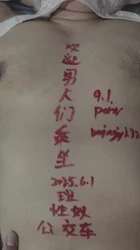 欢迎男人们乘坐
2025.6.1
性奴
公交车
9.1.
porn